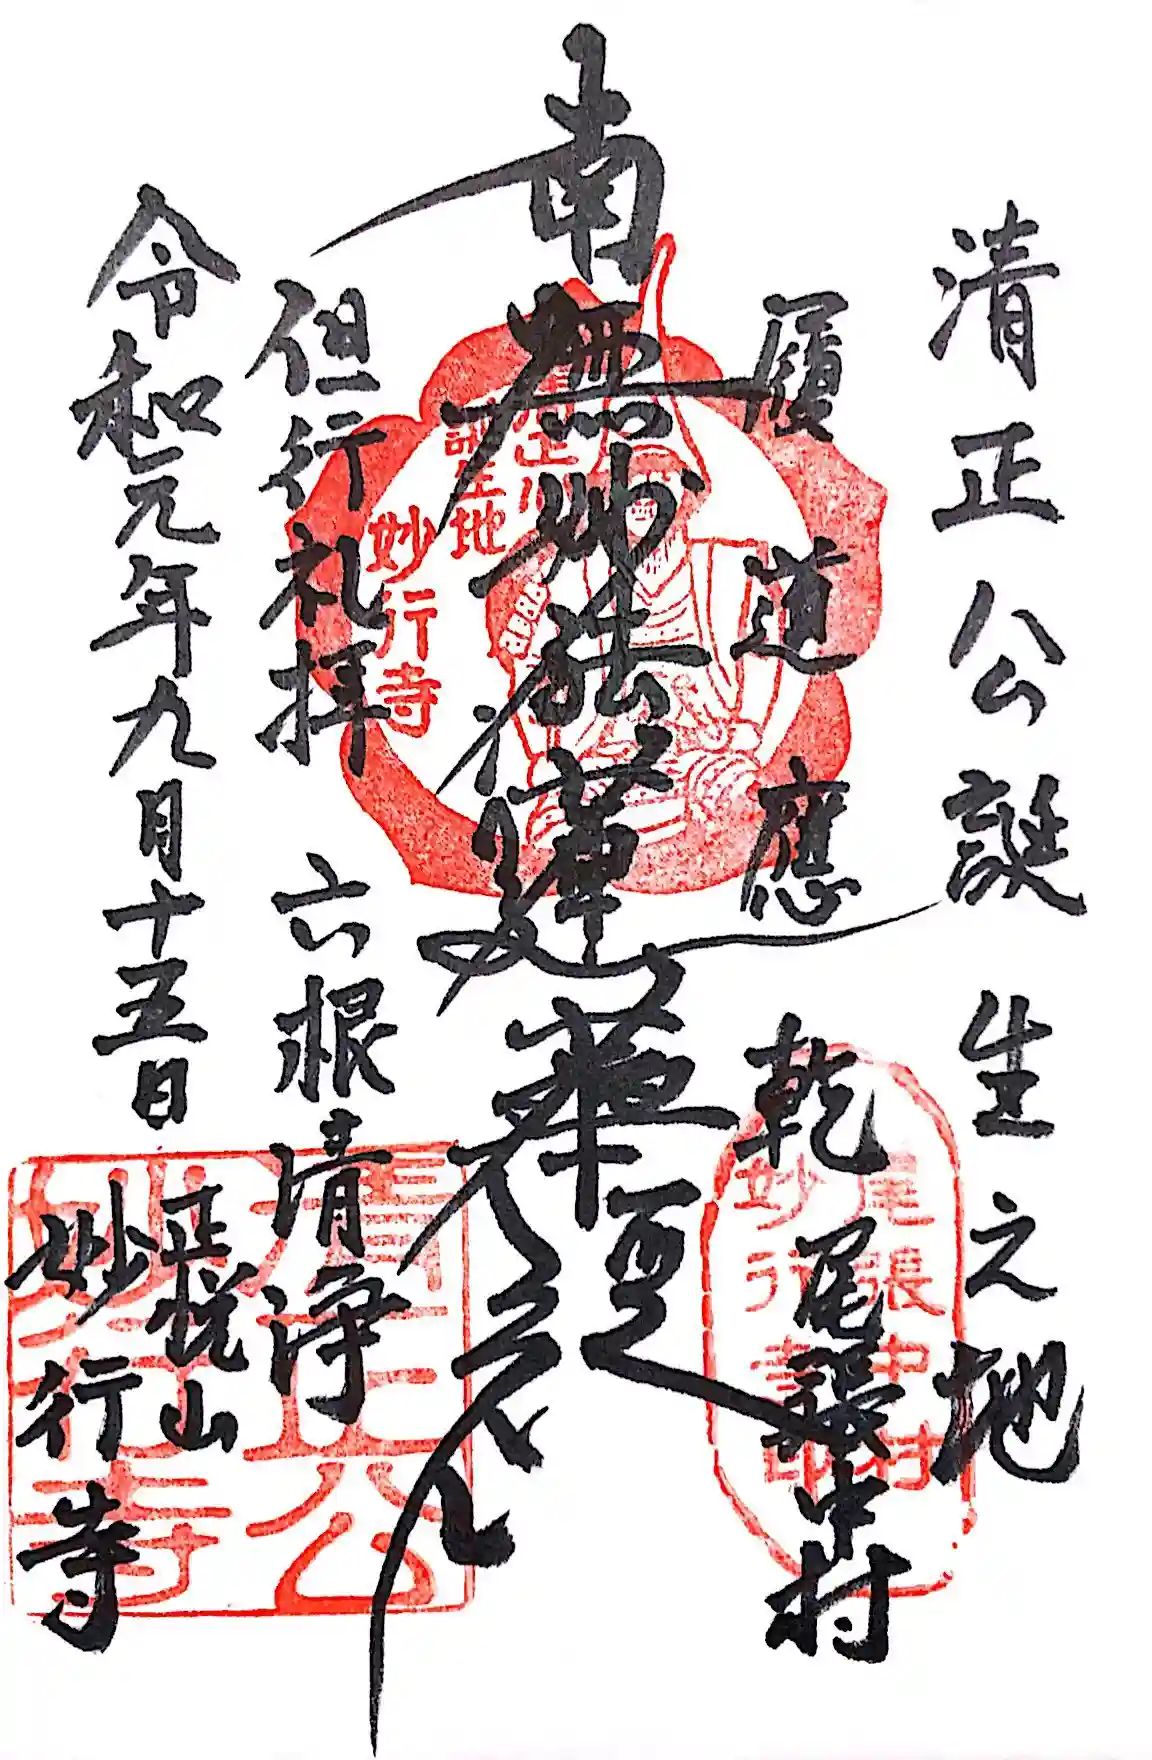 清正公誕生之地
履道應乾
尾張中村
南無妙法蓮華経
但行礼拝
六根清浄
令和元年九月十五日
正悦山
妙行寺
清正公
誕生地
妙行寺
尾張中村
妙行寺印
清正公
妙行寺